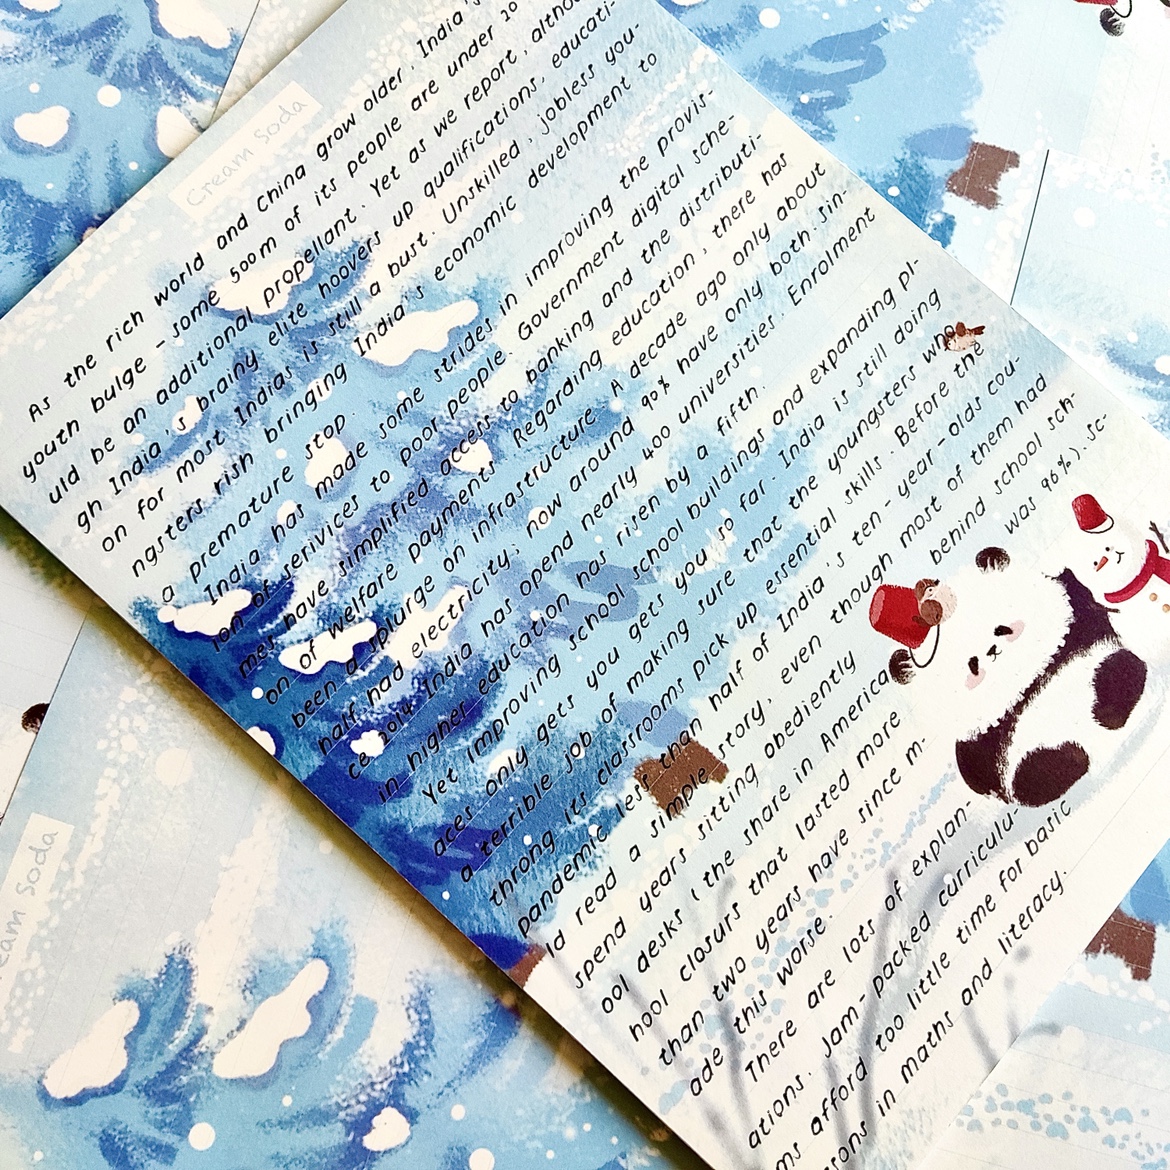 Cream Soda
As the rich world and China grow older, India's
youth bulge - some 500m of its people are under 20
uld be an additional propellant. Yet as we report, althou
gh India's brainy elite hoovers up qualifications, educati-
on for most Indias is still a bust. Unskilled, jobless you-
ngsters rish bringing India's economic development to
a premature stop.
India has made some strides in improving the provis-
ion of serivices to poor people. Government digital sche-
mes have simplified access to banking and the distributi-
on of welfare payments. Regarding education, there has
been a splurge on infrastructure. A decade ago only about
half had electricity; now around 90% have only both.Sin-
ce 2014 India has opend nearly 400 universities. Enrolment
in higher education has risen by a fifth.
Yet improving school school buildings and expanding pl-
aces only gets you gets you so far. India is still doing
a terrible job of making sure that the youngsters who
throng its classrooms pick up essential skills. Before the
pandemic less than half of India's ten-year-olds cou-
ld read a simple story, even though most of them had
spend years sitting obediently behind school sch-
ool desks (the share in America was 96%).Sc-
hool closurs that lasted more
than two years have since m-
ade this worse.
There are lots of explan-
ations. Jam-packed curriculu-
ms afford too little time for basic
ssons in maths and literacy.
eam Soda